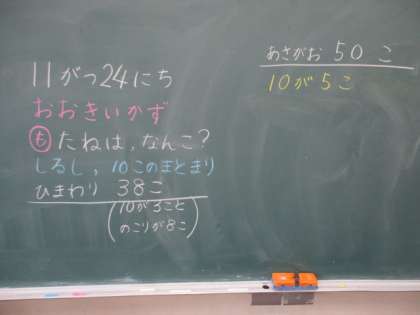 11がつ24にち
おおきいかず
も たねは、なんこ?
しるし、10このまとまり
ひまわり 38こ
(10が3こと
のこりが8こ)
あさがお 50 こ
10が5こ